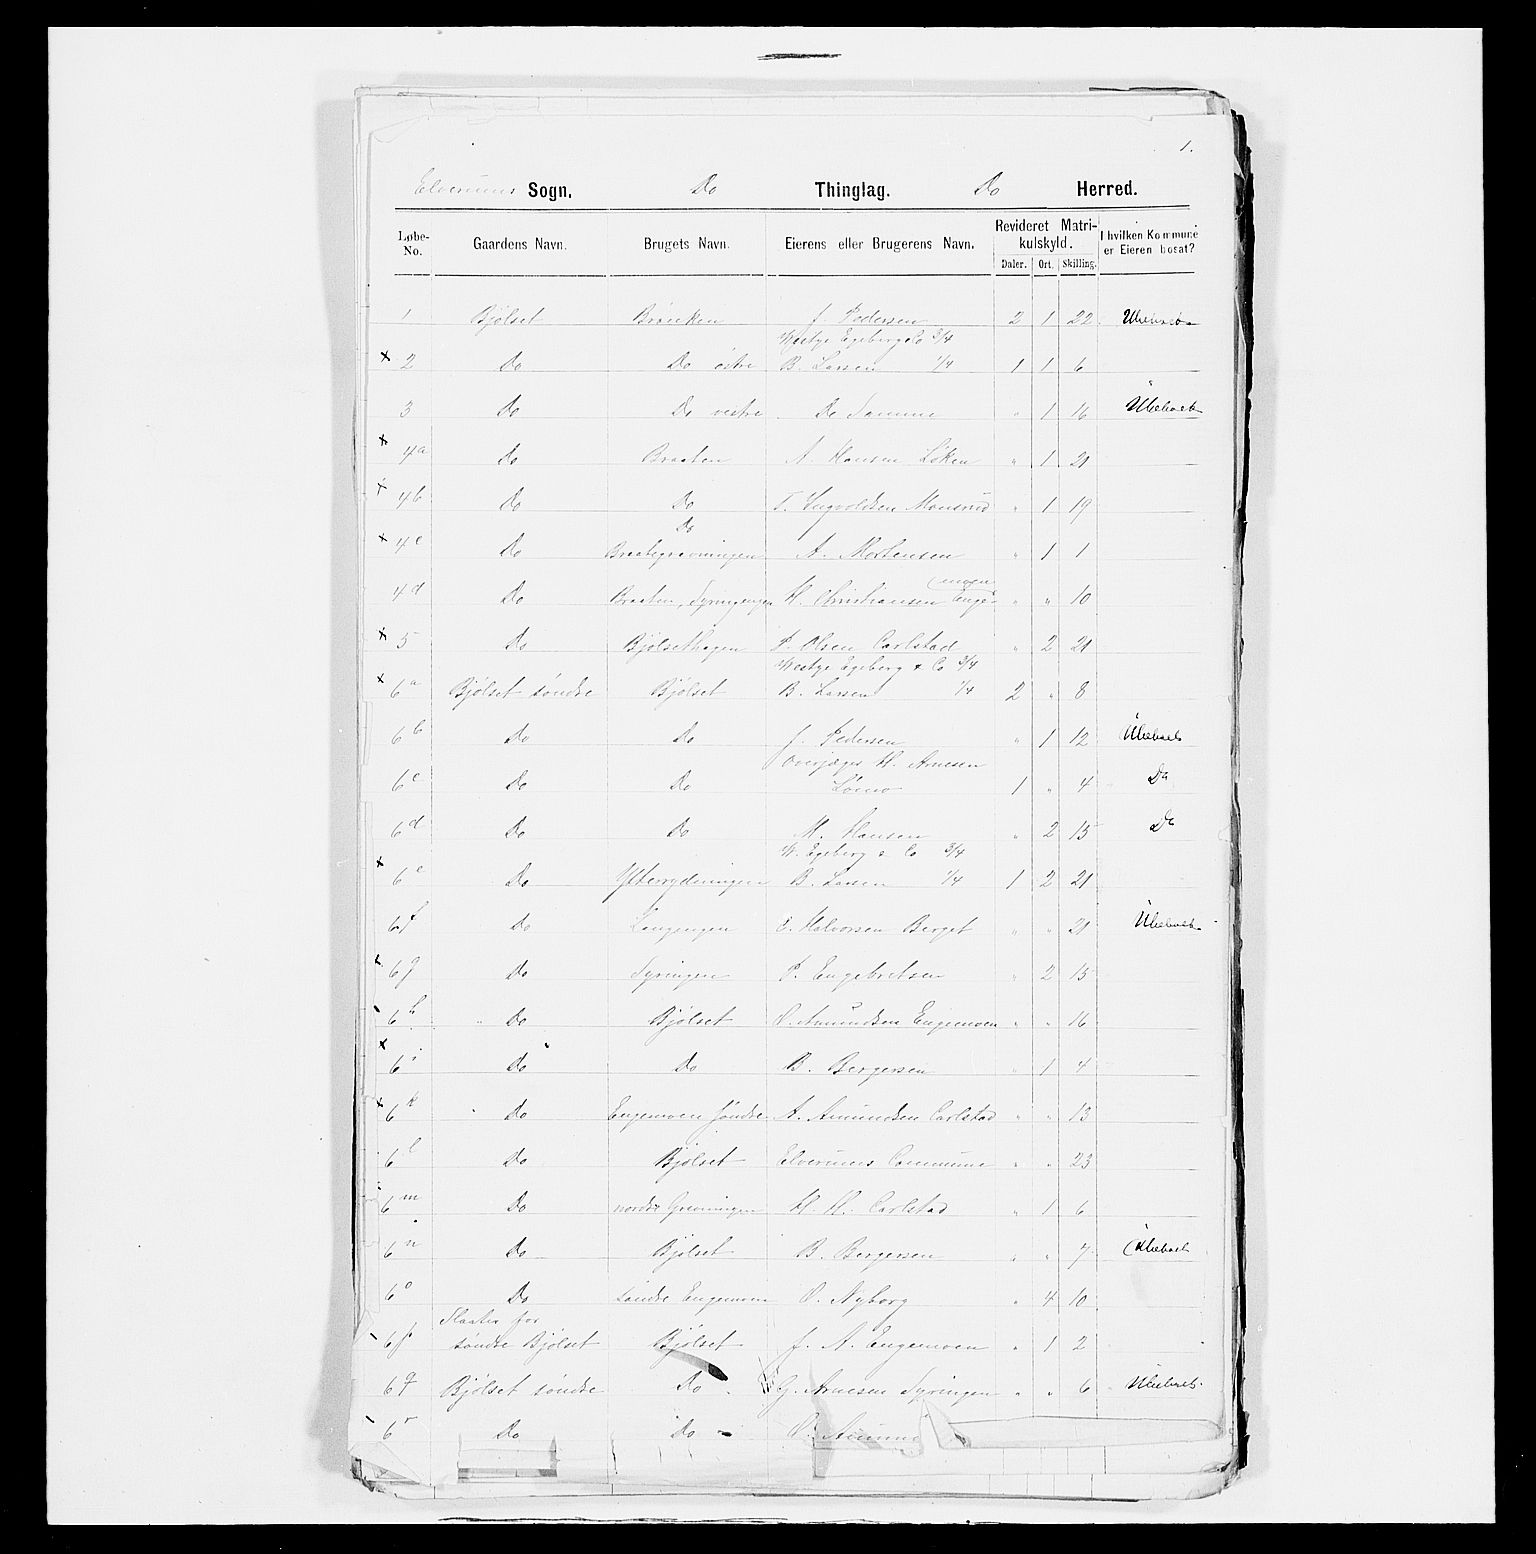 1.
Elverums Sogn. Do Thinglag. Do Herred.
Løbe-No. Gaardens Navn. Brugets Navn. Eierens eller Brugerens Navn. Revideret Matrikulskyld. Daler. Ort. Skilling. I hvilken Kommune er Eieren bosat?
1 Bjölset J. Pedersen 2 1 22
Westye Egeberg & Co 3/4
x 2 Do Do östre B. Larsen 1/4 1 1 6
3 Do Do vestre Do Samme " 1 16
x 4a Do Braaten A. Hansen Löken " 1 21
x 4b Do Do T. Ingvoldsen " 1 19
Do
x 4c Do A. Mortensen " 1 1
4d Do Braaten, H. Christiansen " " 10
x 5 Do Bjölsethagen P. Olsen Carlstad " 2 21
Westye Egeberg & Co 3/4
x 6a Bjölset söndre Bjölset B. Larsen 1/4 2 " 8
6b Do Do J. Pedersen " 1 12
Overjæger H. Arnesen
6c Do Do 1 " 4 Do
6d Do Do M. Hansen " 2 15 Do
W. Egeberg & Co 3/4
x 6e Do Ytterrydningen B. Larsen 1/4 1 2 21
6f Do E. Halvorsen Berget " " 21
6g Do Syringen P. Engebretsen " 2 15
6h Do Bjölset O. Amundsen Engemoen " " 16
x 6i Do Do B. Bergersen " 1 4
x 6k Do Engemoen söndre A. Amundsen Carlstad " " 13
6l Do Bjölset Elverums Commune " " 23
6m Do nordre H. H. Carlstad " 1 6
6n Do Bjölset B. Bergersen " " 7
6o Do söndre Engemoen O. Nyborg " 4 10
6p söndre Bjölset Bjölset J. A. Engemoen " 1 2
6q Bjölset söndre Do G. Arnesen Syringen " " 6
6r Do Do O.